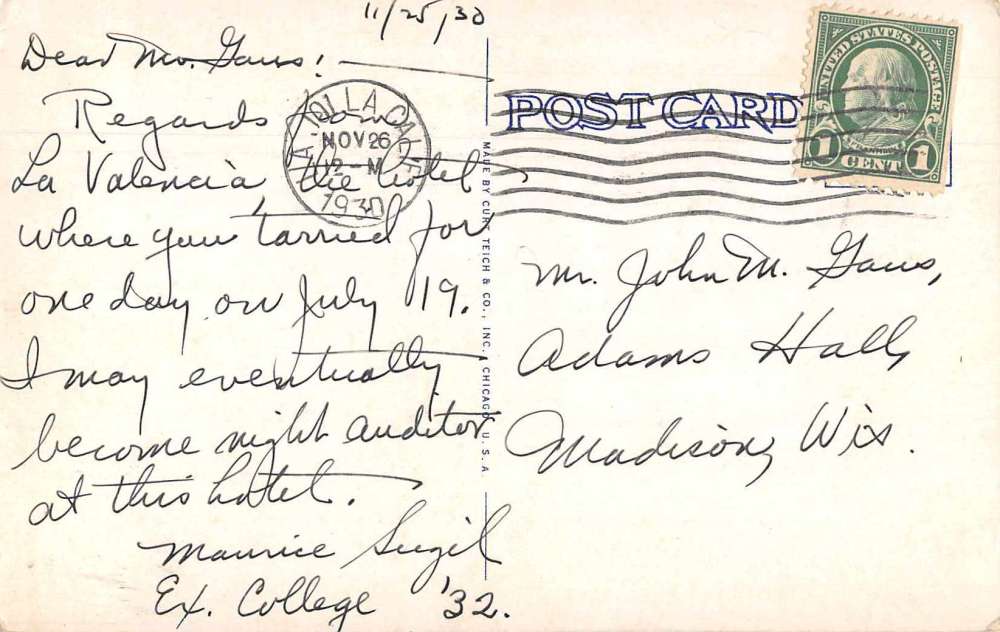 11/25/30
Dear Mr. Gaus:
Regards from
La Valencia, the hotel
where you tarried for
one day on July 19.
I may eventually
become night auditor
at this hotel.
Maurice
Ex. College '32.
LA JOLLA, CALIF.
NOV 26
12-M
1930
MADE BY CURT TEICH & CO., INC., CHICAGO, U.S.A.
POST CARD
UNITED STATES POSTAGE
FRANKLIN
1 CENT 1
Mr. John M. Gaus,
Adams Hall,
Madison, Wis.